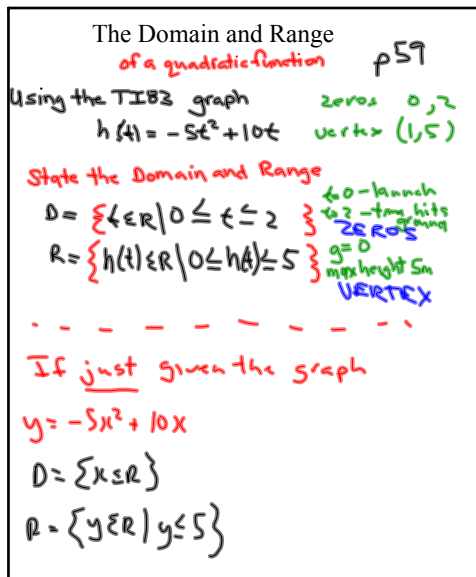 The Domain and Range
of a quadratic function
p59
Using the TI83 graph
zeros 0,2
h(t) = -5t² + 10t
vertex (1,5)
State the Domain and Range
D = {t ε R | 0 ≤ t ≤ 2 }
t=0 - launch
t=2 - time hits
ground
ZEROS
R = {h(t) ε R | 0 ≤ h(t) ≤ 5 }
g = 0
max height 5m
VERTEX
If just given the graph
y = -5x² + 10x
D = {x ε R}
R = {y ε R | y ≤ 5}